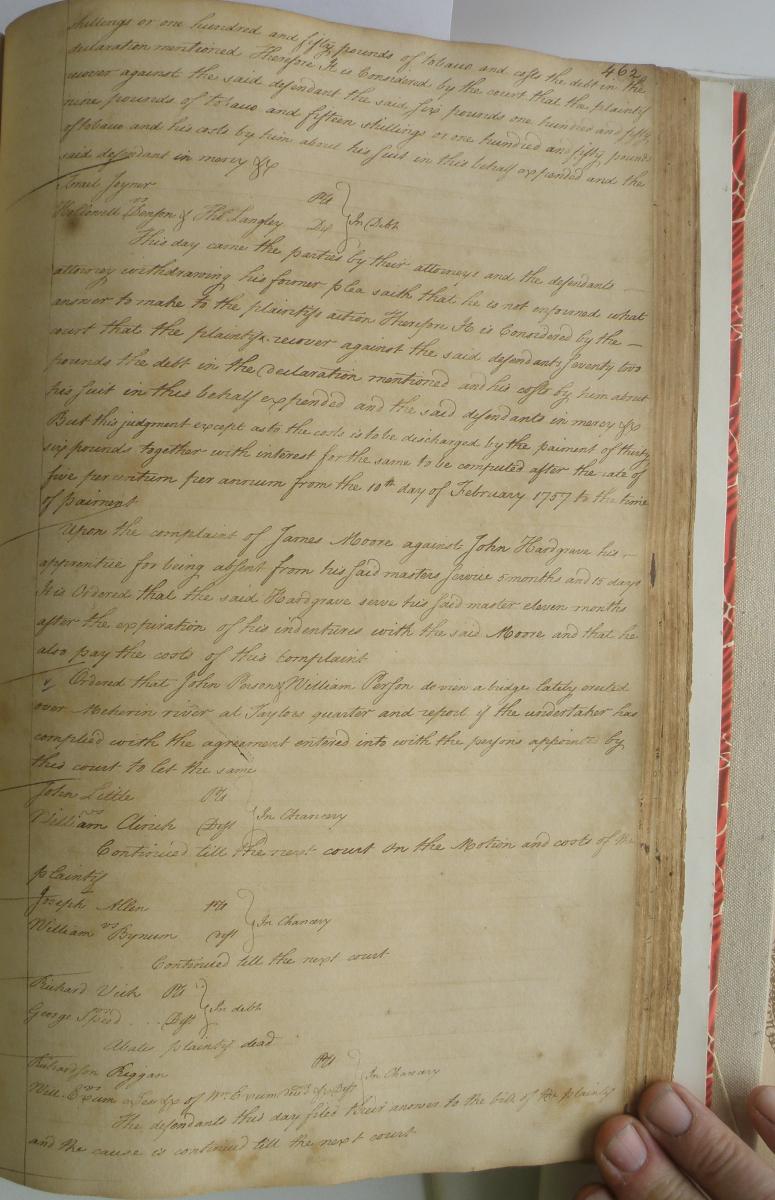 462
shillings or one hundred and fifty pounds of tobacco and costs the debt in the
declaration mentioned Therefore It is Considered by the court that the plaintif
recover against the said defendant the said six pounds one hundred and fifty
nine pounds of tobacco and fifteen shillings or one hundred and fifty pounds
of tobacco and his costs by him about his suit in this behalf expended and the
said defendant in mercy &c
Joyner Plt
vs In Debt
Benson & Thos Langley Dft
This day came the parties by their attorneys and the defendants
attorney withdrawing his former plea saith that he is not informed what
answer to make to the plaintifs action Therefore It is Considered by the
court that the plaintif recover against the said defendants seventy two
pounds the debt in the Declaration mentioned and his costs by him about
his suit in this behalf expended and the said defendants in mercy &c
But this judgment except as to the costs is to be discharged by the paiment of thirty
six pounds together with interest for the same to be computed after the rate of
five per centum per annum from the 10th day of February 1757 to the time
of paiment
Upon the complaint of James Moore against John Hardgrave his
apprentice for being absent from his said masters service 5 months and 15 days
It is Ordered that the said Hardgrave serve his said master eleven months
after the expiration of his indentures with the said Moore and that he
also pay the costs of this complaint
Ordered that John Person & William Person do view a bridge lately erected
over Meherin river at Taylors quarter and report if the undertaker has
complied with the agreament entered into with the persons appointed by
this court to let the same
John Little Plt
vs In Chancery
William Clinch Deft
Continued till the next court on the Motion and costs of the
plaintif
Joseph Allen Plt
vs In Chancery
William Bynum Deft
Continued till the next court
Richard Plt
vs In debt
George Deft
Abates plaintif dead
Richardson Plt
vs In Chancery
Will. Exum Exec &c of Wm. Exum dec'd &c Deft
The defendants this day filed their answer to the bill of the plaintif
and the cause is continued till the next court